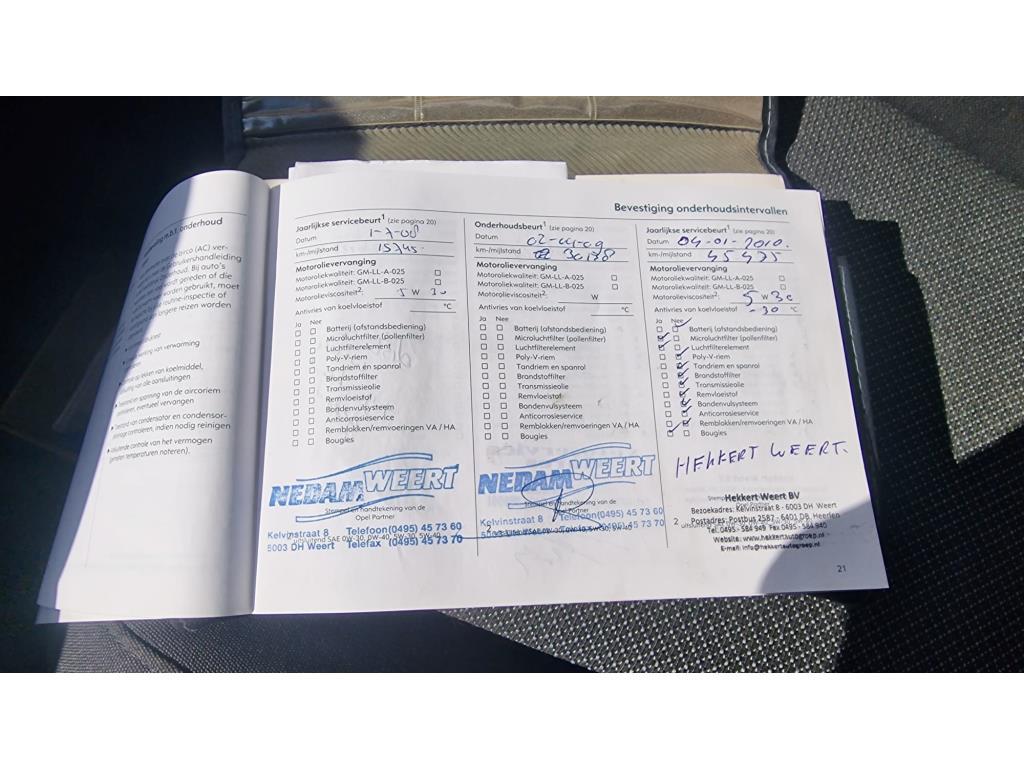 m.b.t. onderhoud
airco (AC) ver-
gebruikershandleiding
onderhoud. Bij auto's
geregeld of die
worden gebruikt, moet
routine-inspectie of
langere reizen worden
werking van verwarming
lekken van koelmiddel,
van alle aansluitingen
en spanning van de aircoriem
controleren, eventueel vervangen
van condensator en condensor-
drainage controleren, indien nodig reinigen
controle van het vermogen
(temperaturen noteren).
Bevestiging onderhoudsintervallen
Jaarlijkse servicebeurt1 (zie pagina 20)
Datum 1-7-08
km-/mijlstand 15745
Motorolievervanging
Motoroliekwaliteit: GM-LL-A-025
Motoroliekwaliteit: GM-LL-B-025
Motorolieviscositeit2: 5 W 30
Antivries van koelvloeistof °C
Ja Nee
Batterij (afstandsbediening)
Microluchtfilter (pollenfilter)
Luchtfilterelement
Poly-V-riem
Tandriem en spanrol
Brandstoffilter
Transmissieolie
Remvloeistof
Bandenvulsysteem
Anticorrosieservice
Remblokken/remvoeringen VA / HA
Bougies
NEDAM WEERT
Stempel en handtekening van de
Opel Partner
Kelvinstraat 8 Telefoon (0495) 45 73 60
6003 DH Weert Telefax (0495) 45 73 70
uitsluitend SAE 0W-30, 0W-40, 5W-30, 5W-40
Onderhoudsbeurt1 (zie pagina 20)
Datum
km-/mijlstand 30178
Motorolievervanging
Motoroliekwaliteit: GM-LL-A-025
Motoroliekwaliteit: GM-LL-B-025
Motorolieviscositeit2: W
Antivries van koelvloeistof °C
Ja Nee
Batterij (afstandsbediening)
Microluchtfilter (pollenfilter)
Luchtfilterelement
Poly-V-riem
Tandriem en spanrol
Brandstoffilter
Transmissieolie
Remvloeistof
Bandenvulsysteem
Anticorrosieservice
Remblokken/remvoeringen VA / HA
Bougies
NEDAM WEERT
Stempel en handtekening van de
Opel Partner
Kelvinstraat 8 Telefoon (0495) 45 73 60
Jaarlijkse servicebeurt1 (zie pagina 20)
Datum 04-01-2010.
km-/mijlstand 45475
Motorolievervanging
Motoroliekwaliteit: GM-LL-A-025
Motoroliekwaliteit: GM-LL-B-025
Motorolieviscositeit2: 5 W 30
Antivries van koelvloeistof -30 °C
Ja Nee
Batterij (afstandsbediening)
Microluchtfilter (pollenfilter)
Luchtfilterelement
Poly-V-riem
Tandriem en spanrol
Brandstoffilter
Transmissieolie
Remvloeistof
Bandenvulsysteem
Anticorrosieservice
Remblokken/remvoeringen VA / HA
Bougies
HEKKERT WEERT.
Hekkert Weert BV
Bezoekadres: Kelvinstraat 8 - 6003 DH Weert
Postadres: Postbus 2587 - 6401 DB Heerlen
Tel. 0495 - 584 949 Fax 0495 - 584 940
Website: www.hekkertautogroep.nl
E-mail: info@hekkertautogroep.nl
21